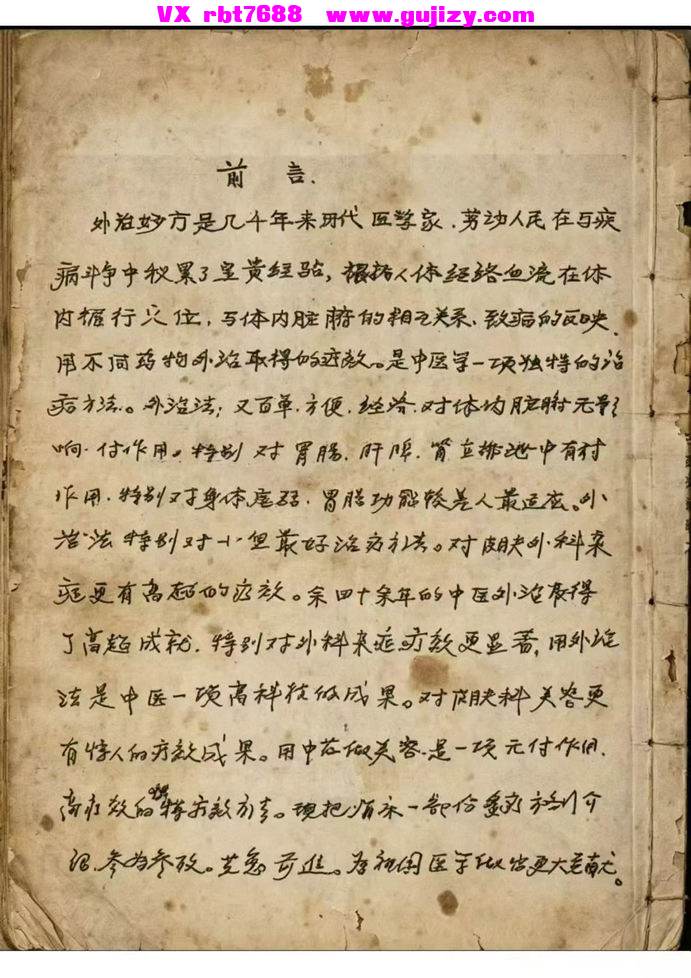 VX rbt7688 www.gujizy.com
前言.
外治妙方是几千年来历代医学家.劳动人民在与疾
病斗争中积累了宝贵经验,根据人体经络血流在体
内运行穴位,与体内脏腑的相互关系、致病的反映.
用不同药物外治取得的疗效。是中医学一项独特的治
病方法。外治法;又简单.方便.经济.对体内脏腑无影
响.付作用。特别对胃肠.肝脾.肾立排泄中有付
作用.特别对身体虚弱.胃肠功能较差人最适应。外
治法特别对小儿最好治疗方法。对皮肤外科杂
症更有高超的疗效。余四十余年的中医外治取得
了高超成就.特别对外科杂症疗效更显著,用外治
法是中医一项高科技的成果。对皮肤科美容更
有惊人的疗效成果。用中药做美容.是一项无付作用.
高疗效的特疗效方法。现把临床一部份方剂介
绍.参为参改。为祖国医学做出更大贡献。